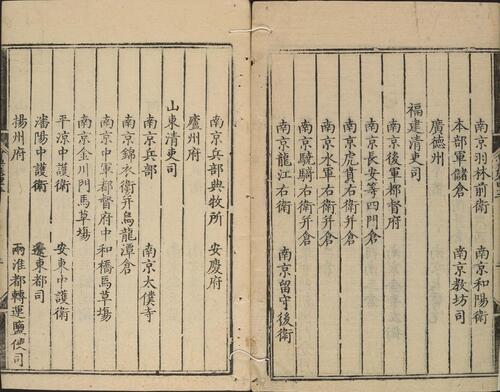 南京羽林前衛 南京和陽衛
本部軍儲倉 南京教坊司
廣德州
福建清吏司
南京後軍都督府
南京長安等四門倉
南京虎賁右衛并倉
南京驍騎右衛并倉
南京水軍右衛并倉
南京龍江右衛 南京留守後衛
南京兵部典牧所 安慶府
廬州府
山東清吏司
南京兵部 南京太僕寺
南京錦衣衛并烏龍潭倉
南京中軍都督府中和橋馬草塲
南京金川門馬草塲
平涼中護衛 安東中護衛
瀋陽中護衛 遼東都司
揚州府 兩淮都轉運鹽使司